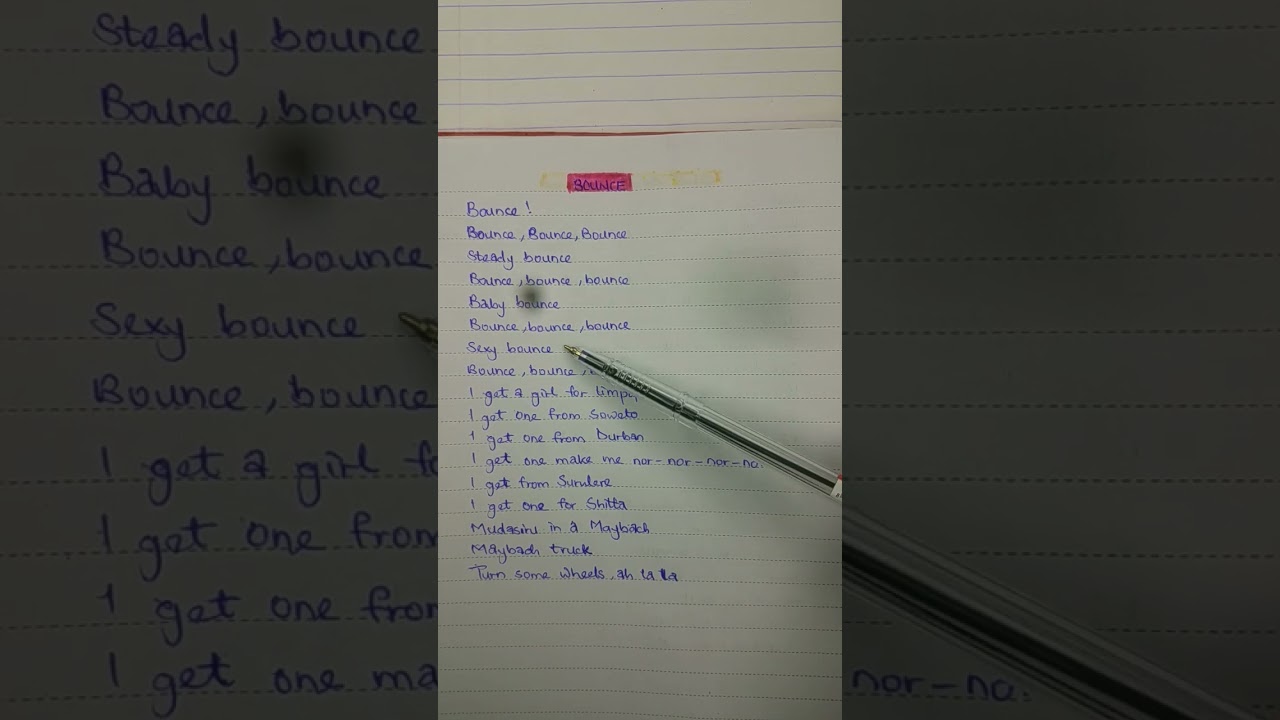 BOUNCE
Bounce!
Bounce, Bounce, Bounce
Steady bounce
Bounce, bounce, bounce
Baby bounce
Bounce, bounce, bounce
Sexy bounce
Bounce, bounce,
I get a girl for limpo,
I get one from Soweto
I get one from Durban
I get one make me nor-nor-nor-na.
I get from Surulere
I get one for Shitta
Mudasiru in a Maybach
Maybach truck
Turn some wheels, ah la la